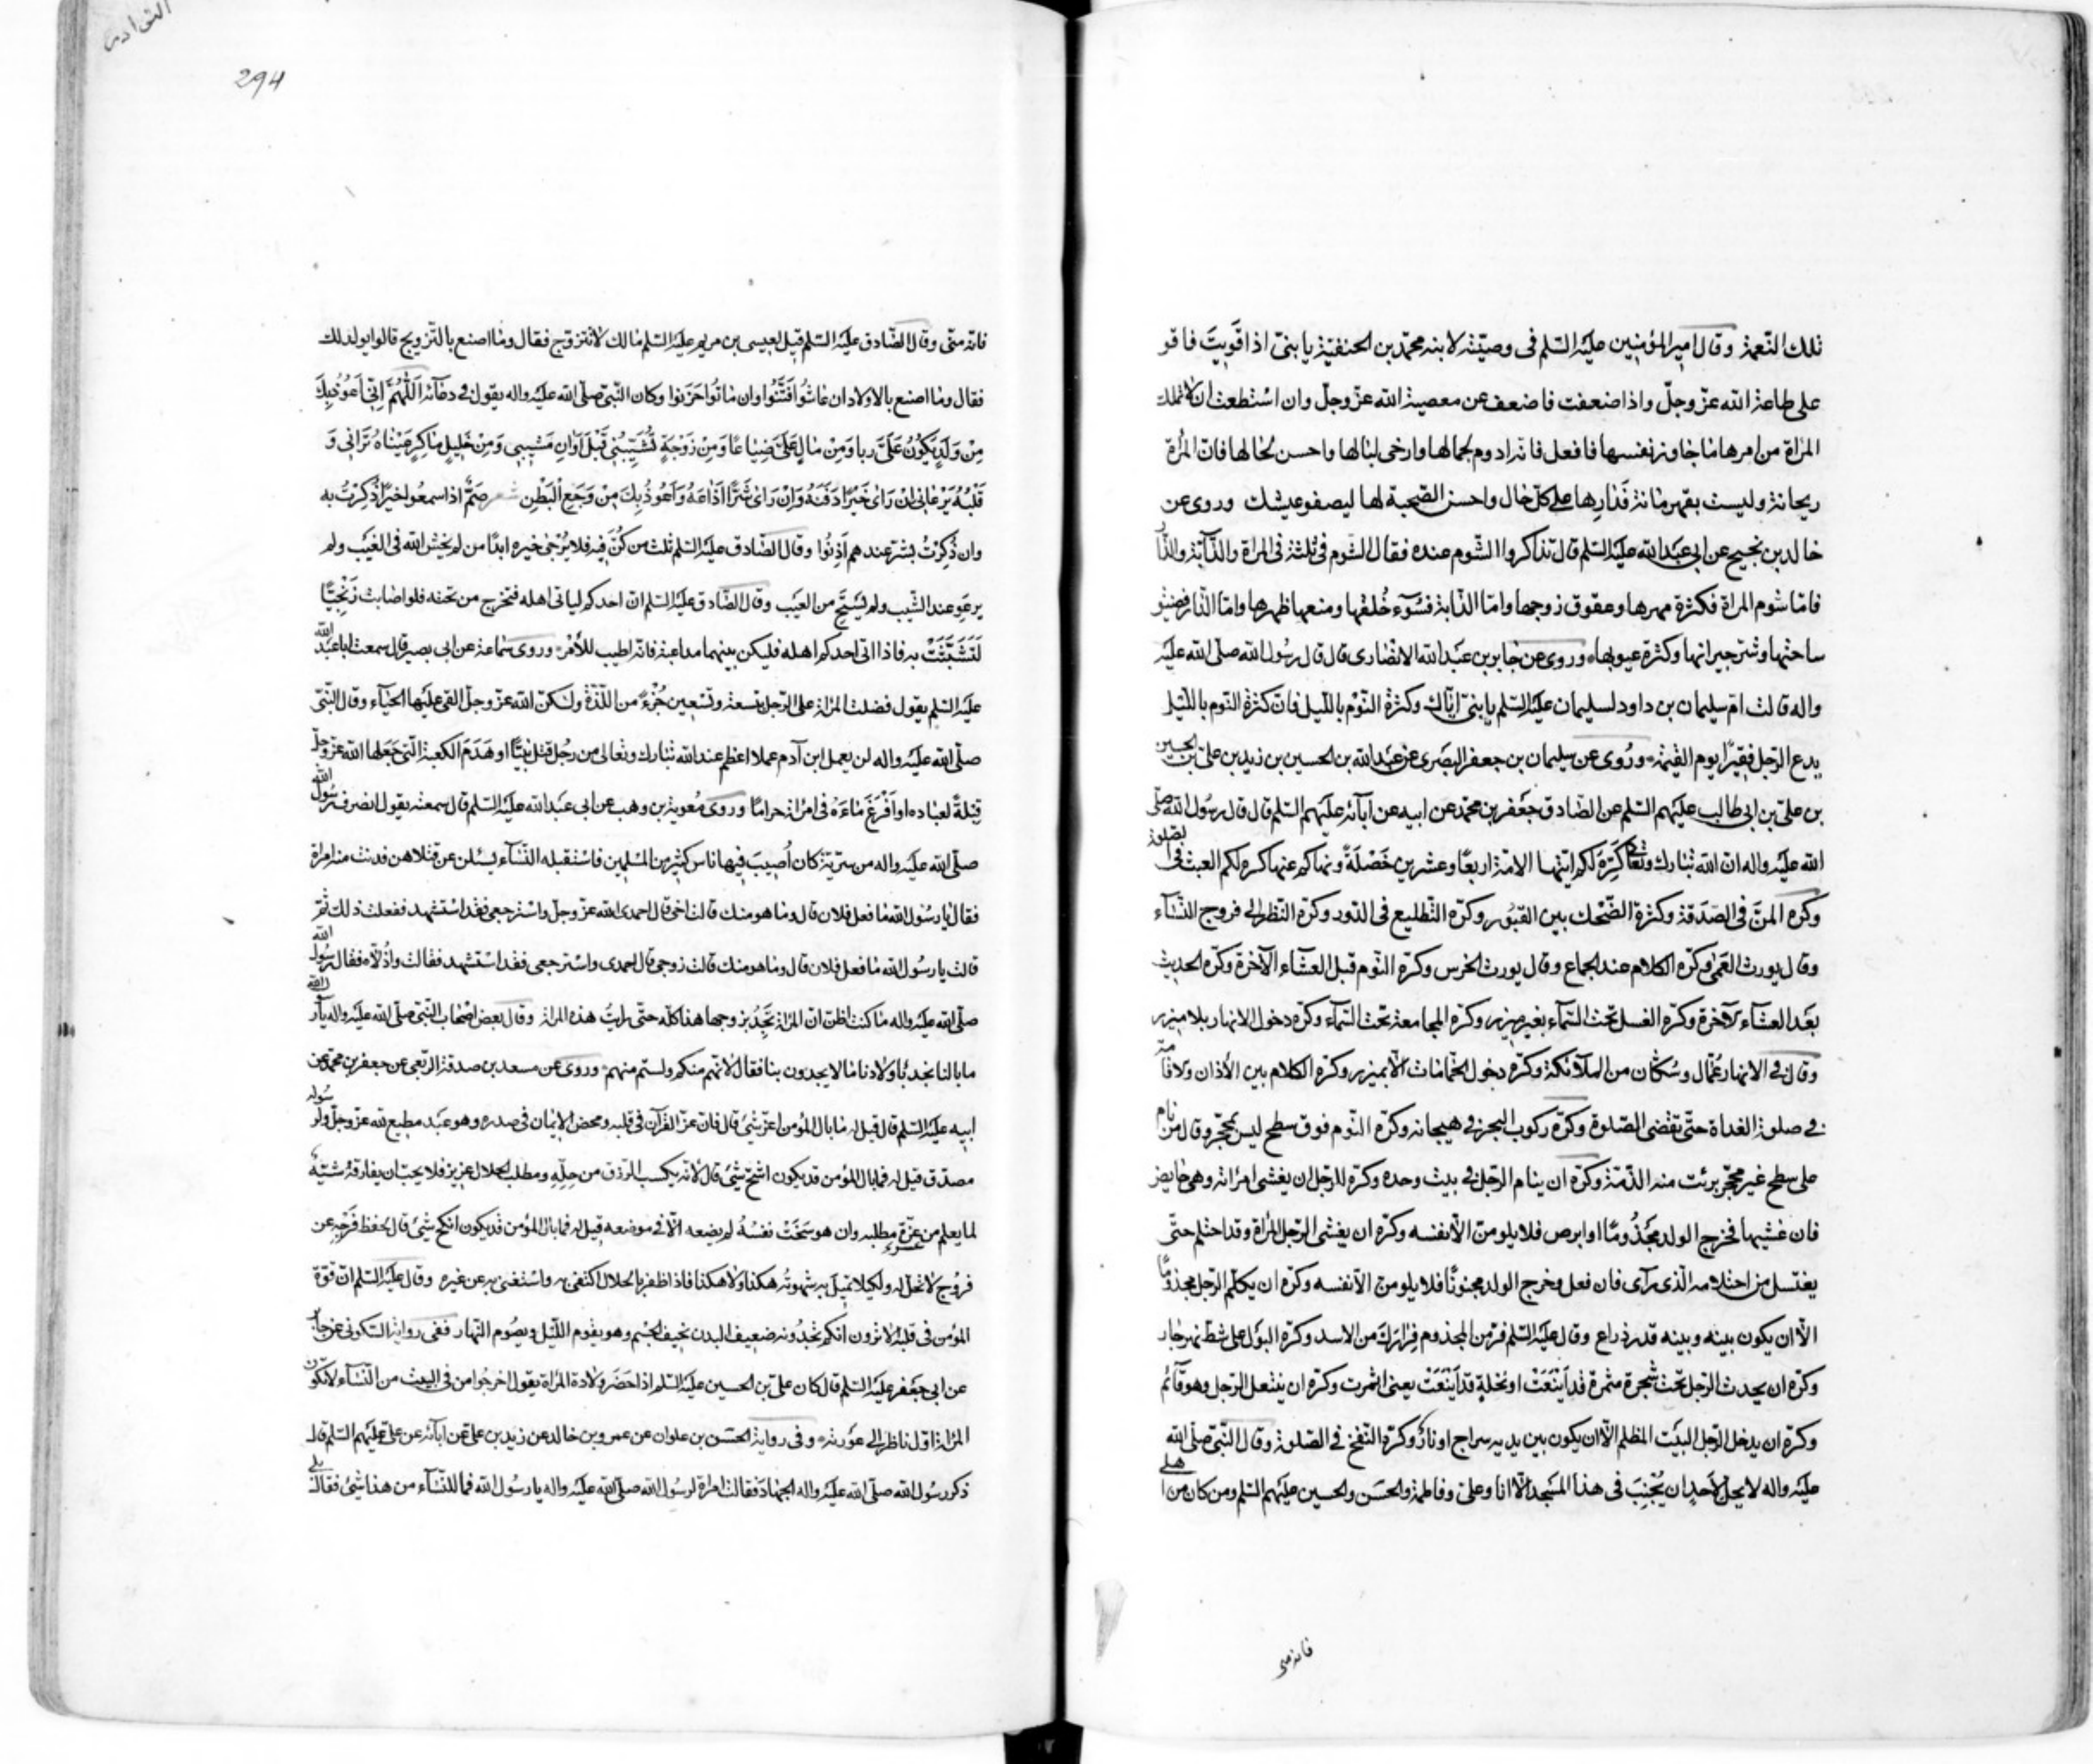 تلك النّعمة وقال امير المؤمنين عليه السّلم فى وصيّته لابنه محمّد بن الحنفيّة يا بنىّ اذا قَوِيتَ فاقو
على طاعة الله عزّ وجلّ واذا ضعفت فاضعف عن معصية الله عزّ وجلّ وان استطعت ان لا تملك
المراة من امرها ما جاوز نفسها فافعل فانّه ادوم لجمالها وارخى لبالها واحسن لحالها فانّ المرأة
ريحانة وليست بقهرمانة فَدارِها على كلّ حال واحسن الصّحبة لها ليصفو عيشك وروى عن
خالد بن نجيح عن ابى عبد الله عليه السّلم قال تذاكروا الشّوم عنده فقال الشّوم فى ثلثة فى المراة والدّابّة والدّار
فامّا شوم المراة فكثرة مهرها وعقوق زوجها وامّا الدّابة فسُوٓء خُلقها ومنعها ظهرها وامّا الدّار فضيق
ساحتها وشرّ جيرانها وكثرة عيوبها وروى عن جابر بن عبد الله الانصارى قال قال رسُول الله صلّى الله عليه
واله قالت امّ سليمان بن داود لسليمان عليه السّلم يا بنىّ ايّاك وكثرة النّوم باللّيل فانّ كثرة النّوم باللّيل
يدع الرّجل فقيرًا يوم القيٰمة وروى عن سليمان بن جعفر البصَرى عن عبد الله بن الحسين بن زيد بن على بن الحسين
بن علىّ بن ابى طالب عليهم السّلم عن الصّادق جعفر بن محمّد عن ابيه عن آبائه عليهم السّلم قال قال رسُول الله صلّى
الله عليه واله انّ الله تبارك وتعالى كَرِهَ لكم ايّتها الامّة اربعًا وعشرين خَصْلةً ونهاكم عنها كره لكم العبث فى الصلوة
وكره المنَّ فى الصّدَقة وكثرة الضّحْك بين القبُور وكره التّطليع فى الدّور وكره النّظر الى فروج النّسآء
وقال يورث العَمىٰ وكره الكلام عند الجماع وقال يورث الخرس وكره النّوم قبل العشآء الآخرة وكره الحديث
بعَد العشآء الآخرة وكره الغسل تحت السّمآء بغير ميزر وكره المجامعة تحت السّمآء وكره دخول الانهار بلا ميزر
وقال فى الانهار عُمّال وسُكّان من الملآئكة وكره دخول الحمّامات الّا بميزر وكره الكلام بين الأذان والاقامة
فى صلوة الغداة حتّى تقضى الصّلوة وكره ركوب البحر فى هيجانه وكره النّوم فوق سطح ليس بمحجّر وقال من نام
على سطح غير محجّر برئت منه الذّمّة وكره ان ينام الرّجل فى بيت وحده وكره للرّجل ان يغشى امرأته وهى حايض
فان غشيها فخرج الولد مجذُومًا او ابرص فلا يلومنّ الّا نفسه وكره ان يغشى الرّجل المرأة وقد احتلم حتّى
يغتسل من احتلامه الّذى رآى فان فعل وخرج الولد مجنونًا فلا يلومنّ الّا نفسه وكره ان يكلّم الرّجل مجذومًا
الّا ان يكون بينه وبينه قدر ذراع وقال عليه السّلم فرّ من المجذوم فِرارَكَ من الاسد وكره البول على شطّ نهر جار
وكره ان يحدث الرّجل تحت شجرة مثمرة قد اَيْنَعَتْ او نخلةٍ قد اَيْنَعَتْ يعنى اثمرت وكره ان ينتعل الرّجل وهو قآئم
وكره ان يدخل الرّجل البيت المظلم الّا ان يكون بين يديه سراج او نارٌ وكره النّفخ فى الصّلوة وقال النّبىّ صلّى الله
عليه واله لا يحلّ لاَحدٍ ان يُجْنِبَ فى هذا المسجد الّا انا وعلىّ وفاطمة والحسَن والحسين عليهم السّلم ومن كان من اهلى
فانه منى
النوادر
294
فانّه منّى وقال الصّادق عليه السّلم قيل لعيسى بن مريم عليه السّلم مالك لا تتزوّج فقال وما اصنع بالتّزويج قالوا يولد لك
فقال وما اصنع بالاولاد ان عاشُوا فَتَنُوا وان ماتُوا حَزَنوا وكان النّبىّ صلّى الله عليه واله يقول فى دعآئه اَللّٰهُمَّ اِنّى اَعُوذُ بِكَ
مِنْ وَلَدٍ يَكُونُ عَلَىَّ ربا وَمِنْ مالٍ يكون عَلَىَّ ضِياعًا وَمِنْ زَوْجَةٍ تُشَيِّبُنى قَبْلَ اَوانِ مَشِيبِى وَمِنْ خَلِيلٍ ماكِرٍ عَيْناهُ تَرانِى وَ
قَلْبُهُ يَرْعانى اِنْ رَاىٰ خَيْرًا دَفَنَهُ وَاِنْ رَاىٰ شَرًّا اَذاعَهُ وَاَعُوذُ بِكَ مِنْ وَجَعِ اْلبَطْنِ شعر صَمٌّ اذا سمعُوا خيرًا ذُكِرْتُ به
وان ذُكِرْتُ بشرّ عندهم اَذِنُوا وقال الصّادق عليه السّلم ثلث من كُنَّ فيه فلا يُرْجىٰ خيره ابدًا من لم يخش الله فى الغَيب ولم
يرعَوِ عند الشّيب ولم يَسْتَحِ من العَيب وقال الصّادق عليه السّلم انّ احدكم لياتى اهله فتخرج من تحته فلو اصابت زَنْجِيًّا
لَتَشَبَّثَتْ به فاذا اتى احدكم اهله فليكن بينهما مداعبة فانّه اطيب للأمْر وروى سماعة عن ابى بصير قال سمعت ابا عبد الله
عليه السّلم يقول فضلت المراة على الرّجل بتسعة وتسعين جُزْءً من اللّذّة ولكنّ الله عزّ وجلّ القى عليها الحيَآء وقال النّبىّ
صلّى الله عليه واله لن يعمل ابن آدم عملا اعظم عند الله تبارك وتعالى من رجُل قتل نبيًّا او هَدَمَ الكعبة الّتى جَعَلها الله عزّ وجلّ
قِبْلةً لعباده او اَفْرَغَ ماءَهُ فى امرأة حرامًا وروى مُعوية بن وهب عن ابى عبد الله عليه السّلم قال سمعته يقول انصرف رسُول الله
صلّى الله عليه واله من سريّة كان اُصيبَ فيها ناس كثير من المسلمين فاستقبله النّسآء يسئلن عن قتلاهن فدنت منه امراة
فقالت يا رسُول الله ما فعل فلان قال وما هو منك قالت اخى قال احمدى الله عزّ وجلّ واسترجعى فقد استشهد ففعلت ذلك ثمّ
قالت يا رسُول الله ما فعل فلان قال وما هو منك قالت زوجى قال احمدى الله واسترجعى فقد استشهد فقالت واذُلّاه فقال رسُول الله
صلّى الله عليه واله ما كنت اظنّ انّ المراة تَجِدُ بزوجها هذا كلّه حتّى رايتُ هذه المراة وقال بعض اصْحاب النّبىّ صلّى الله عليه واله يا رسول الله
ما بالنا نجد باَولادنا ما لا يجدون بنا فقال لانّهم منكم ولستم منهم وروى عن مسعد بن صدقة الرّبعى عن جعفر بن محمّد عن
ابيه عليه السّلم قال قيل له ما بال المؤمن اعزّ شئ قال فانّ عزّ القرآن فى قلبه ومحض الإيمان فى صدره وهو عَبد مطيع لله عزّ وجلّ ولرسوله
مصدّق قيل له فما بال المؤمن قد يكون اشحّ شئ قال لأنّه يكسب الرّزق من حِلّهِ ومطلب الحلال عزيز فلا يحبّ ان يفارقه شيئه
لما يعلم من عزّة مطلبه وان هو سَخَتْ نفسُهُ لم يضعه الّا فى موضعه قيل له فما بال المؤمن قد يكون انكح شئ قال لحفظ فَرْجِه عن
فروُج لا تحلّ له ولكيلا تميل به شهوته هكذا ولا هكذا فاذا ظفر بالحلال اكتفى به واستغنى به عن غيره وقال عليه السّلم انّ قوّة
المؤمن فى قلبه الا ترون انّكم تجدُونه ضعيف البدن نحيف الجسْم وهو يقوم اللّيل ويصُوم النّهار ففى رواية السّكونى عن جابر
عن ابى جعفر عليه السّلم قال كان علىّ بن الحسين عليه السّلم اذا حَضَر ولادة المرأة يقول اخرجُوا من فى البيت من النّسآء لا تكون
المراة اوّل ناظر الى عوَرته وفى رواية الحسَن بن علوان عن عمرو بن خالد عن زيد بن علىّ عن آبآئه عن علىّ عليهم السّلم قال
ذكر رسُول الله صلّى الله عليه واله الجهادَ فقالت امراة لرسُول الله صلّى الله عليه واله يا رسُول الله فما للنّسآء من هذا شئ فقال بلى